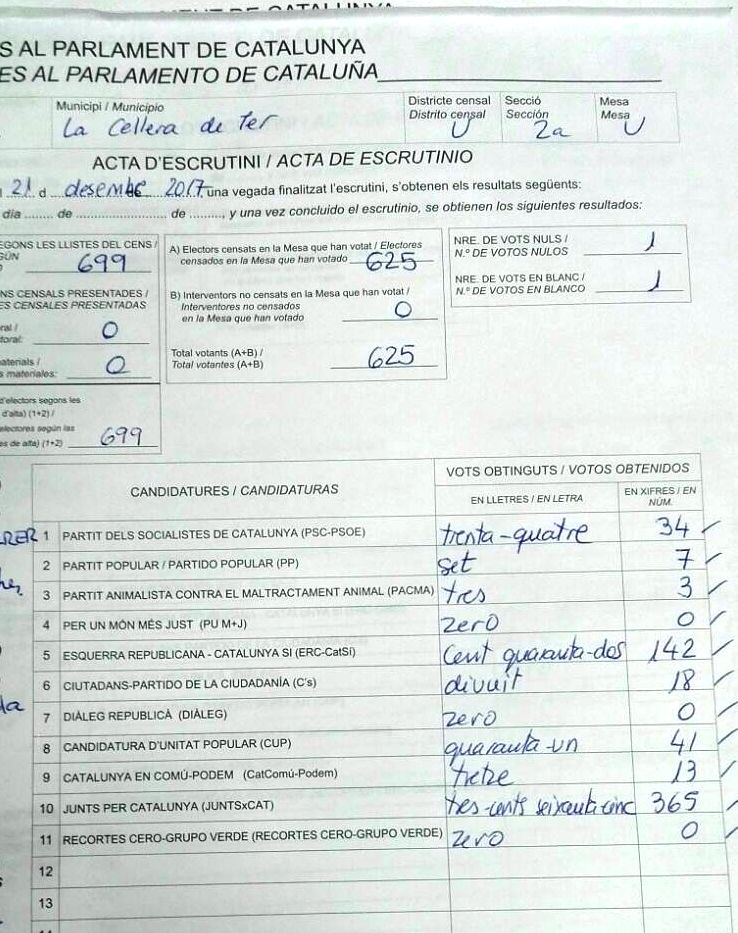 S AL PARLAMENT DE CATALUNYA
ES AL PARLAMENTO DE CATALUÑA
Municipi / Municipio
La Cellera de Ter
Districte censal
Distrito censal
U
Secció
Sección
2a
Mesa
Mesa
U
ACTA D'ESCRUTINI / ACTA DE ESCRUTINIO
21 d desembre 2017, una vegada finalitzat l'escrutini, s'obtenen els resultats següents:
día ........ de ........................ de ........., y una vez concluido el escrutinio, se obtienen los siguientes resultados:
EGONS LES LLISTES DEL CENS /
GÚN
699
NS CENSALS PRESENTADES /
ES CENSALES PRESENTADAS
ral /
toral: 0
aterials /
s materiales: 0
d'electors segons les
d'alta) (1+2) /
electores según las
es de alta) (1+2) 699
A) Electors censats en la Mesa que han votat / Electores
censados en la Mesa que han votado 625
B) Interventors no censats en la Mesa que han votat /
Interventores no censados
en la Mesa que han votado 0
Total votants (A+B) /
Total votantes (A+B) 625
NRE. DE VOTS NULS /
N.º DE VOTOS NULOS 1
NRE. DE VOTS EN BLANC /
N.º DE VOTOS EN BLANCO 1
CANDIDATURES / CANDIDATURAS
VOTS OBTINGUTS / VOTOS OBTENIDOS
EN LLETRES / EN LETRA
EN XIFRES / EN
NÚM.
1 PARTIT DELS SOCIALISTES DE CATALUNYA (PSC-PSOE) trenta-quatre 34
2 PARTIT POPULAR / PARTIDO POPULAR (PP) set 7
3 PARTIT ANIMALISTA CONTRA EL MALTRACTAMENT ANIMAL (PACMA) tres 3
4 PER UN MÓN MÉS JUST (PU M+J) zero 0
5 ESQUERRA REPUBLICANA - CATALUNYA SI (ERC-CatSí) Cent quaranta-dos 142
6 CIUTADANS-PARTIDO DE LA CIUDADANÍA (C's) divuit 18
7 DIÀLEG REPUBLICÀ (DIÀLEG) zero 0
8 CANDIDATURA D'UNITAT POPULAR (CUP) quaranta-un 41
9 CATALUNYA EN COMÚ-PODEM (CatComú-Podem) tretze 13
10 JUNTS PER CATALUNYA (JUNTSxCAT) tres-cents seixanta cinc 365
11 RECORTES CERO-GRUPO VERDE (RECORTES CERO-GRUPO VERDE) zero 0
12
13